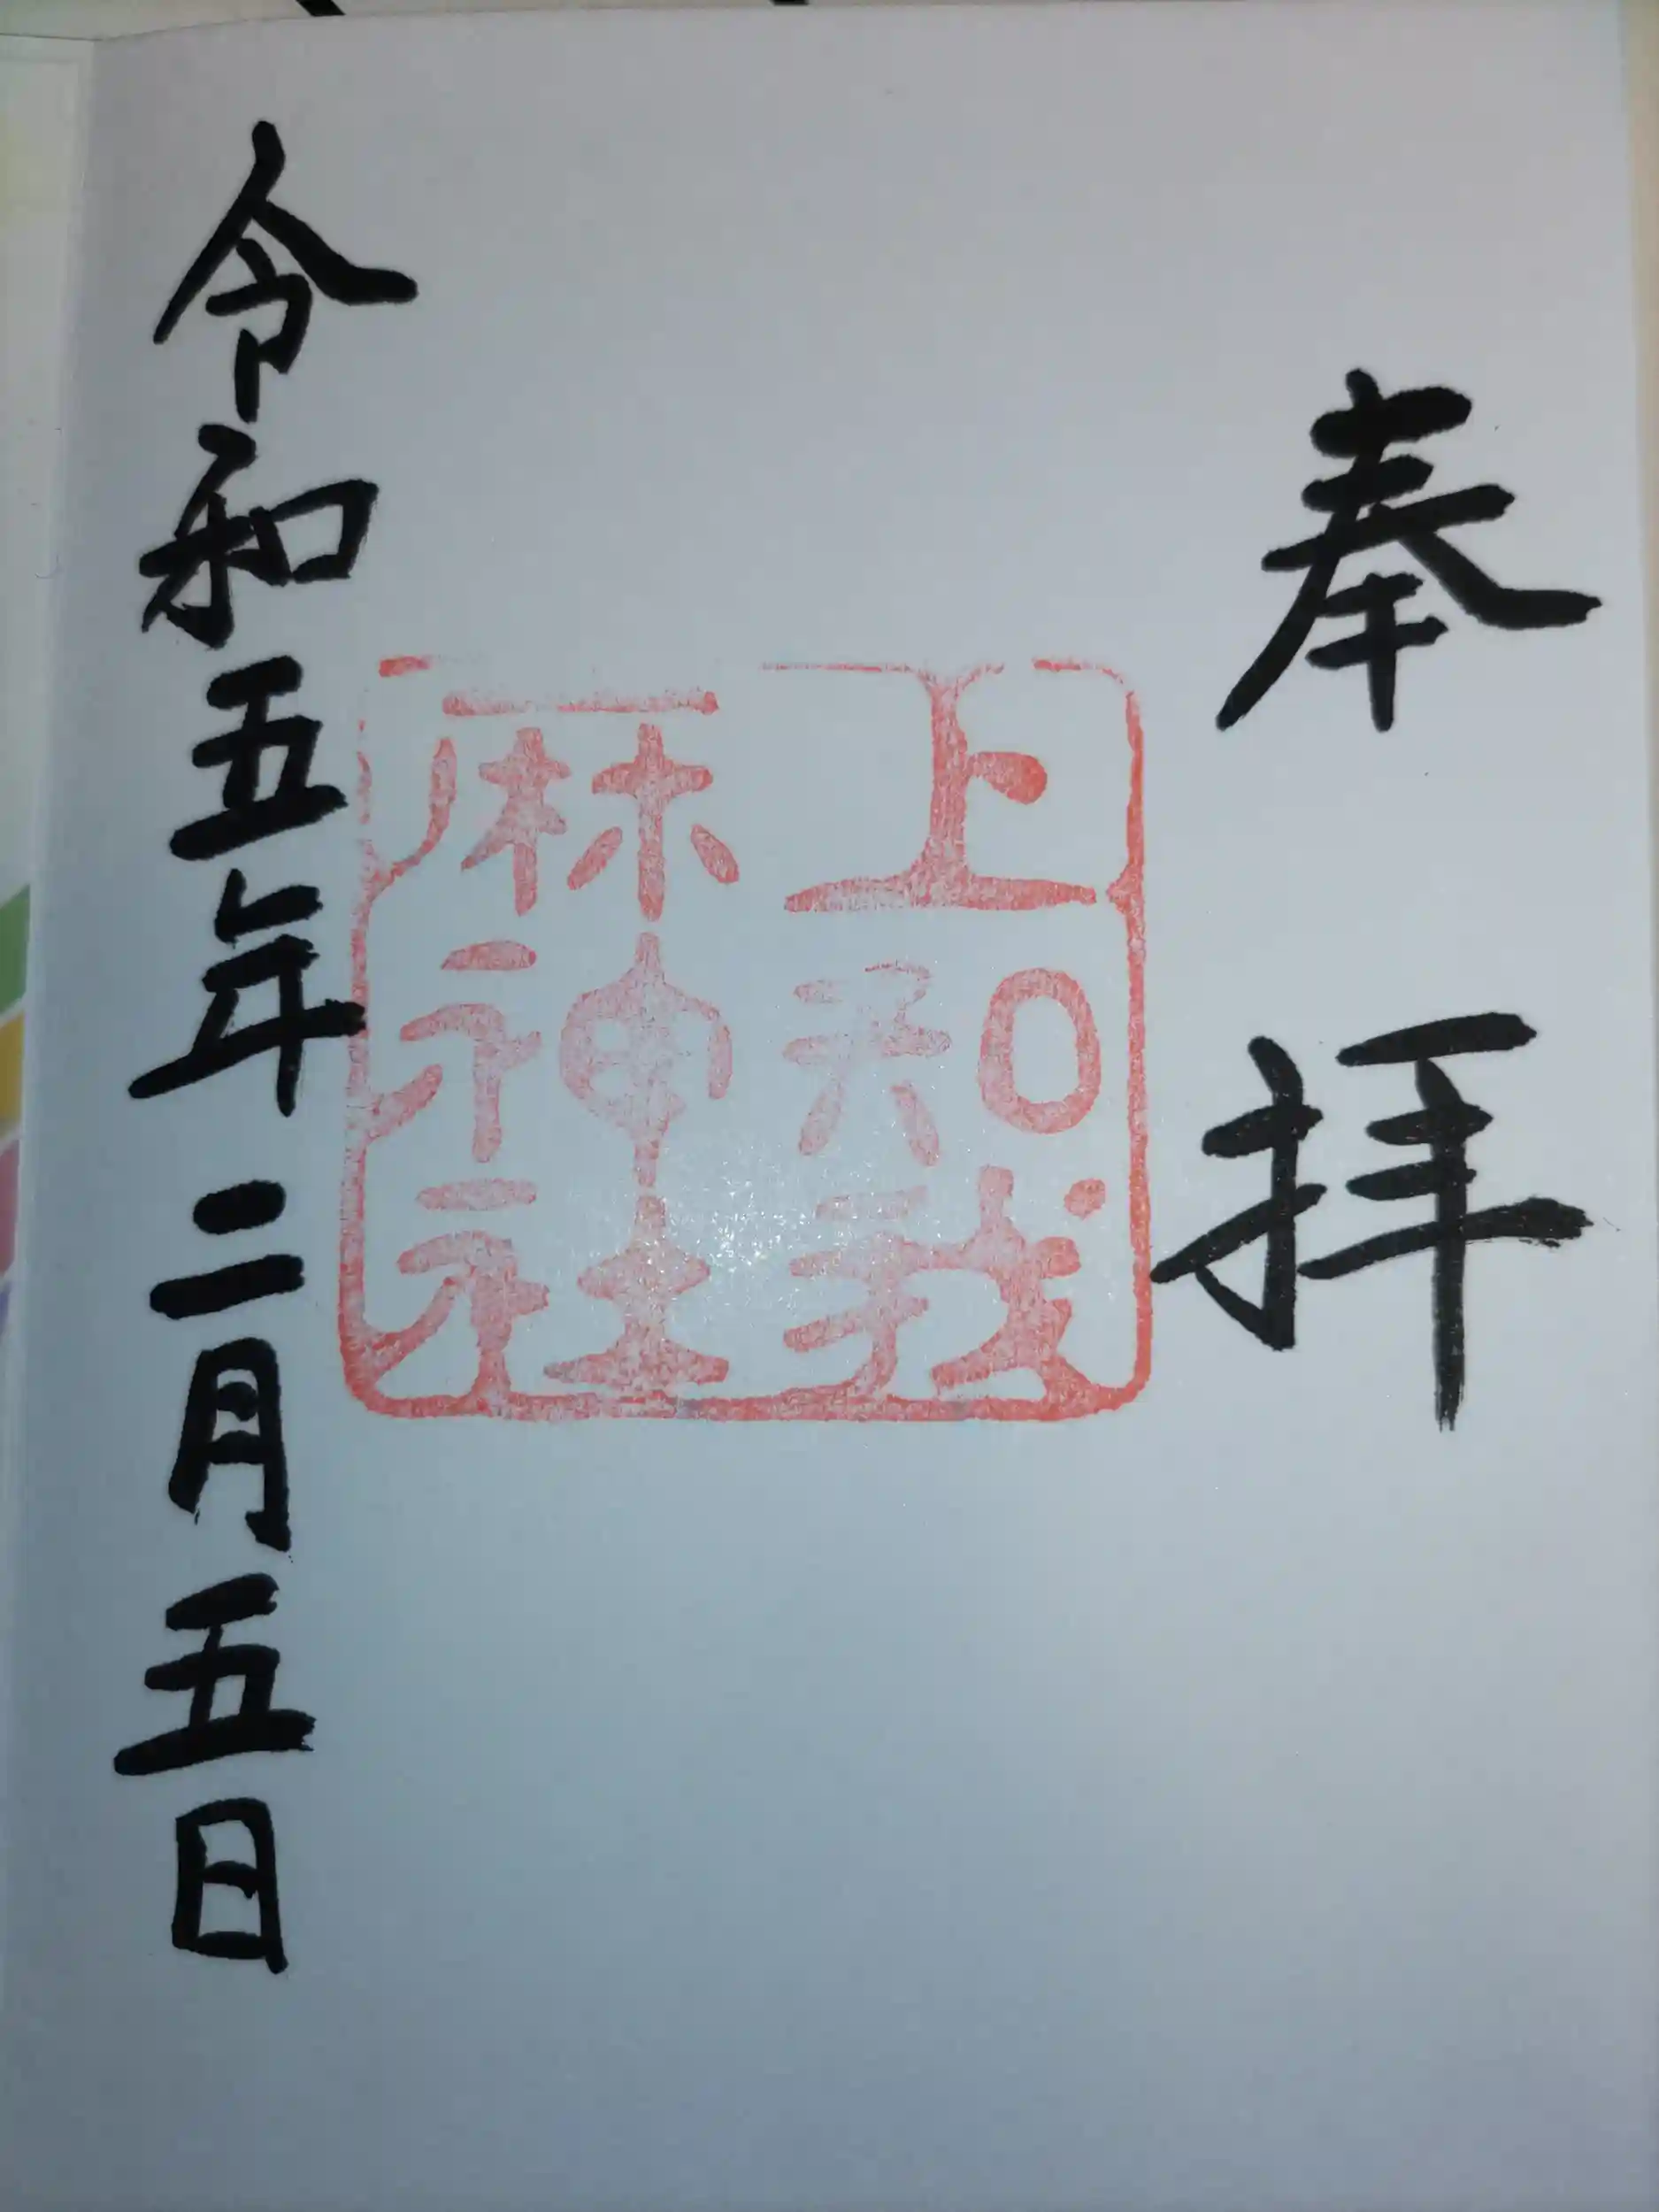 奉拝
上知我
麻神社
令和五年二月五日